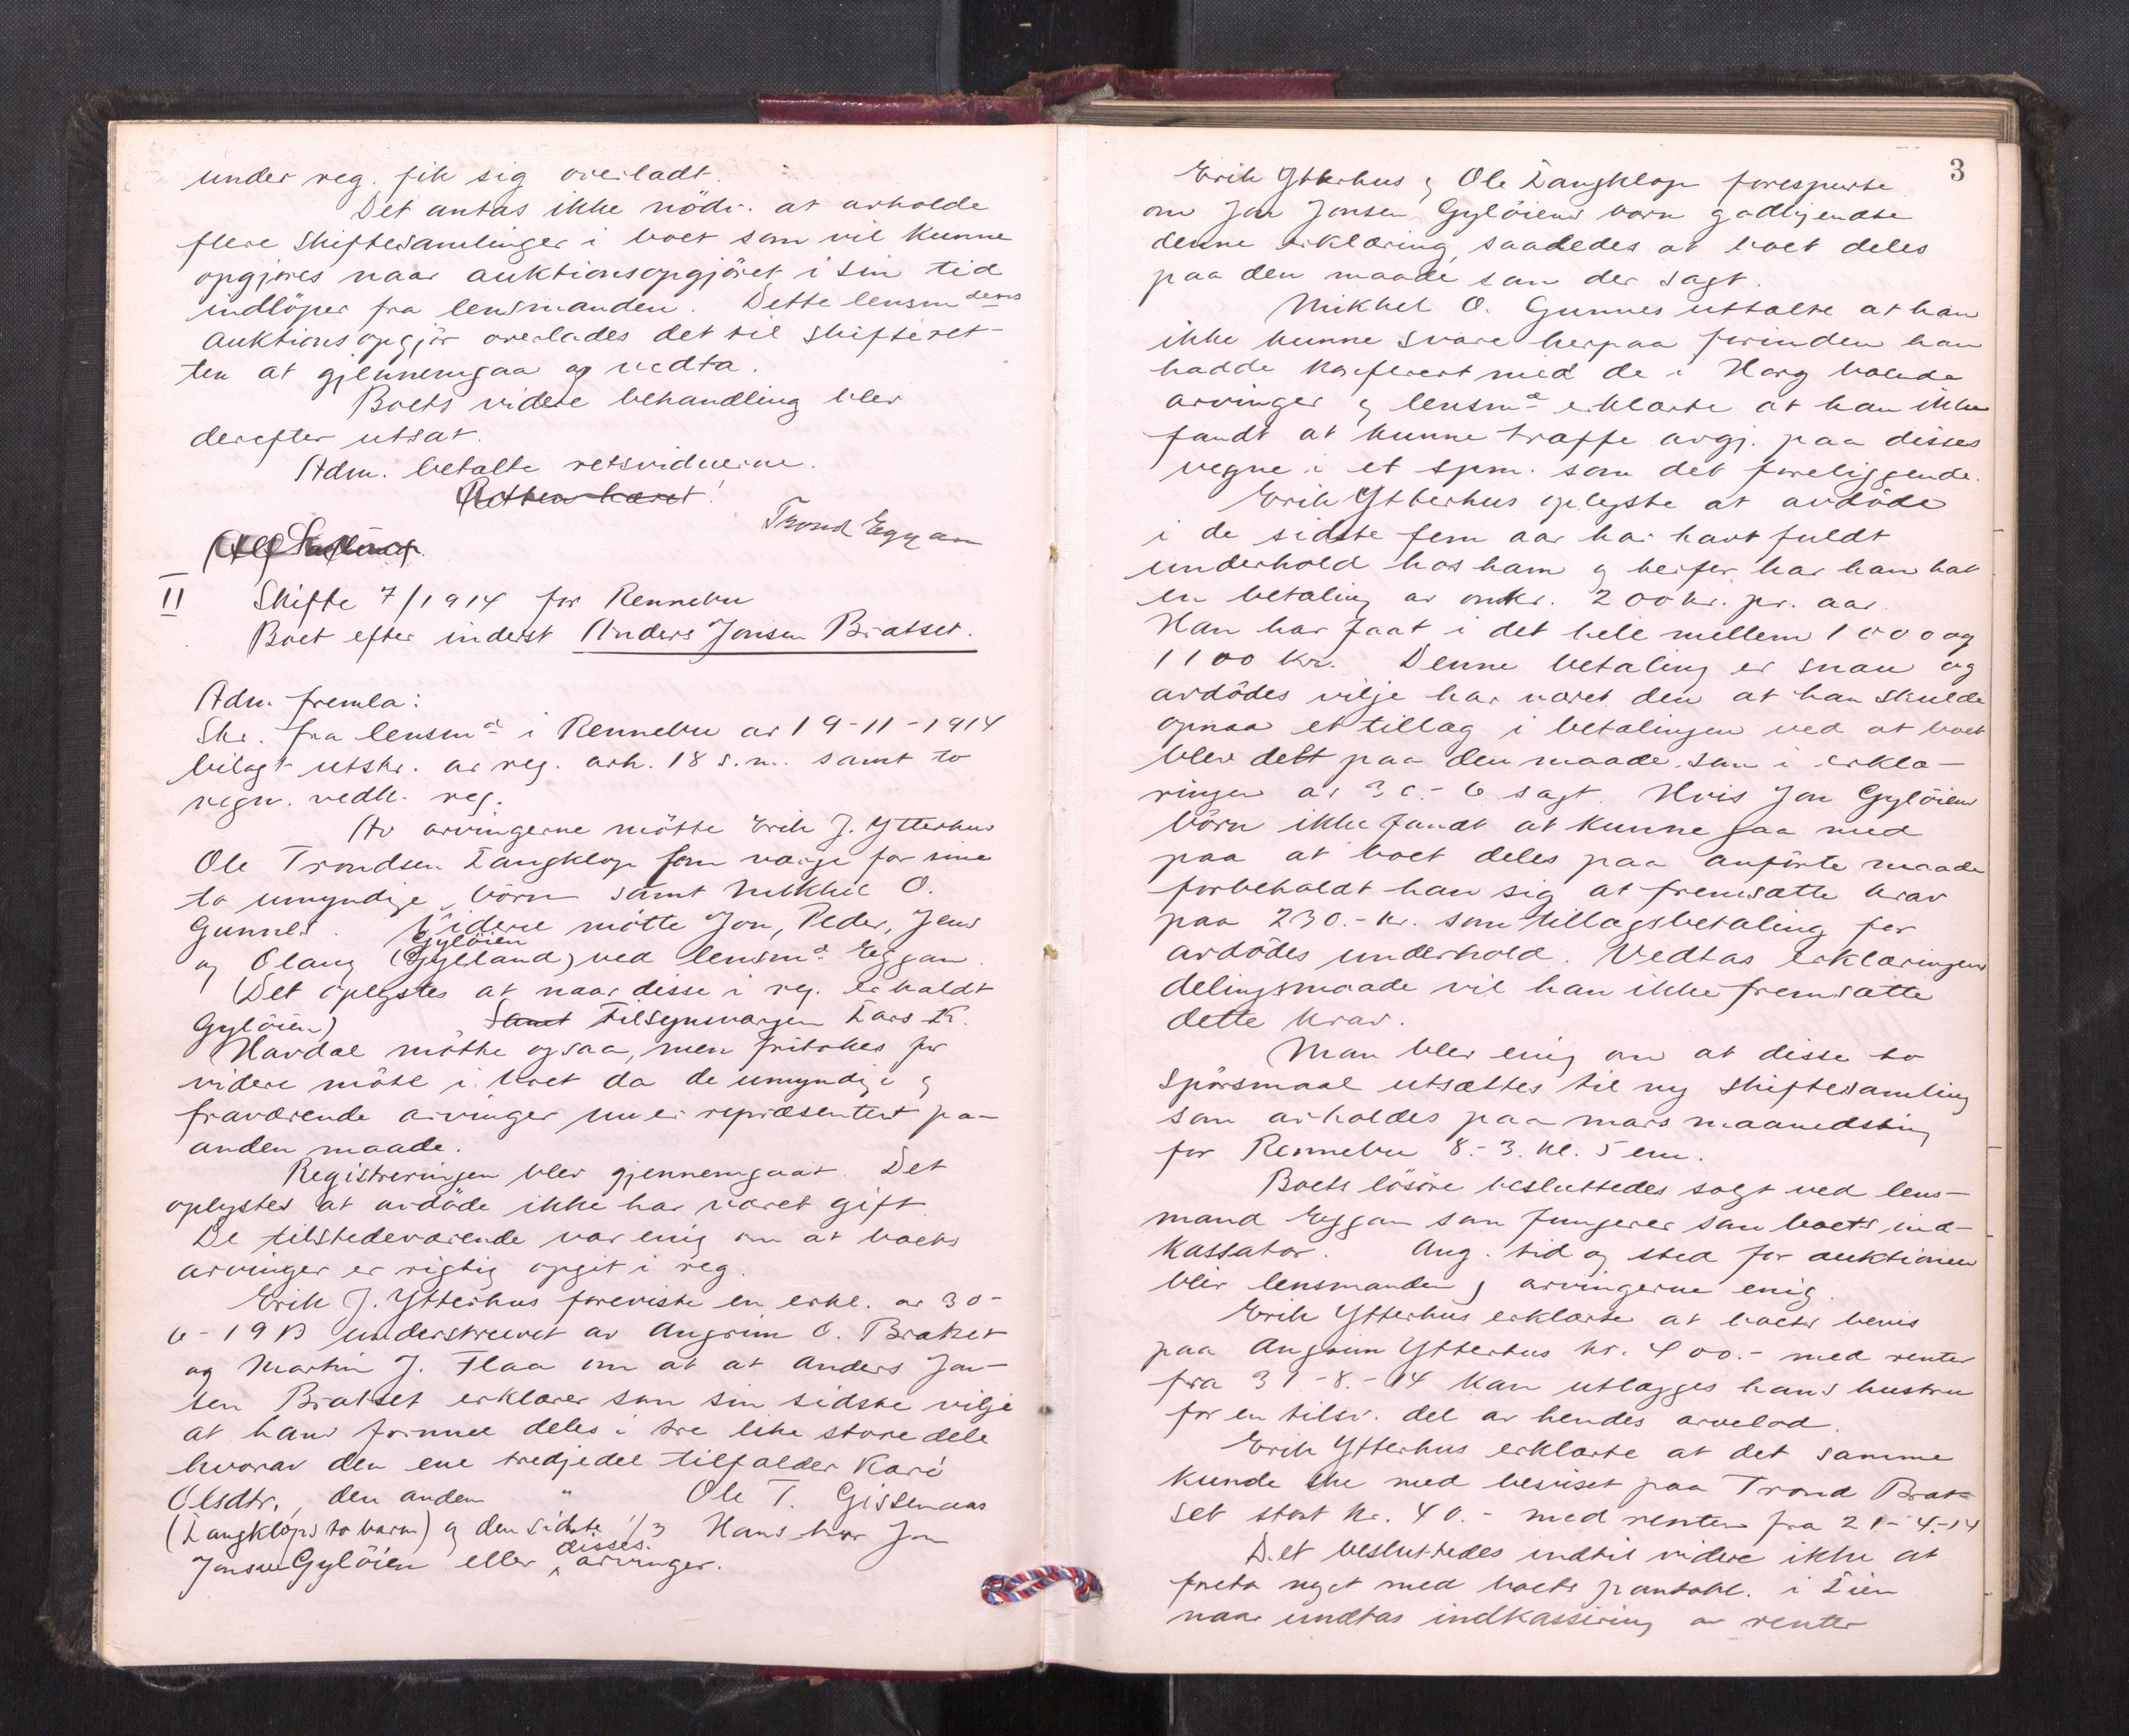 under reg. fik sig overladt.
Det antas ikke nödv. at avholde
flere skiftesamlinger i boet som vil kunne
opgjøres naar auktionsopgjöret i sin tid
indlöper fra lensmanden. Dette lensmdens
auktionsopgjör overlades det til skifteret-
ten at gjennemgaa og vedta.
Boets videre behandling blev
derefter utsat.
Adm. betalte retsvidnerne.
Retten hævet!
Trond Eggan
II Skifte 7/1914 for Rennebu
Boet efter inderst Anders Jonsen Bratset.
Adm. fremla:
Skr. fra lensmd i Rennebu av 19-11-1914
bilagt utskr. av reg. avh. 18 s.m. samt to
regn. vedk. reg.
Av arvingerne mötte Erik J. Ytterhus
Ole Trondsen Langklop som værge for sine
to umyndige börn samt Mikkel O.
Gunnes. Videre mötte Jon, Peder, Jens
Gylöien
og Olaug (Gylland) ved lensmd. Eggan.
(Det oplystes at naar disse i reg. er kaldt
Gylöien) Samt Tilsynsværgen Lars K.
Havdal mötte ogsaa, men fritokes for
videre möte i boet da de umyndige og
fraværende arvinger nu er repræsentert paa
anden maade.
Registreringen blev gjennemgaat. Det
oplystes at avdöde ikke har været gift.
De tilstedeværende var enig om at boets
arvinger er rigtig opgit i reg.
Erik J. Ytterhus foreviste en erkl. av 30-
6-1913 underskrevet av Angrim O. Bratset
og Martin J. Flaa om at at Anders Jon-
sen Bratset erklærer som sin sidste vilje
at hans formue deles i tre like store dele
hvorav den ene tredjedel tilfalder Kari
Olsdtr., den anden " Ole T. Gisnaas
(Langklops to barn) og den sidste 1/3 Hans bror Jon
disses.
Jonsen Gylöien eller arvinger.
3
Erik Ytterhus og Ole Langklop forespurte
om Jon Jonsen Gylöiens barn godkjendte
denne erklæring, saaledes at boet deles
paa den maade som der sagt.
Mikkel O. Gunnes uttalte at han
ikke kunne svare herpaa forinden han
hadde konferert med de i Horg boende
arvinger og lensmd erklærte at han ikke
fandt at kunne træffe avgj. paa disses
vegne i et spm. som det foreliggende.
Erik Ytterhus oplyste at avdöde
i de sidste fem aar har havt fuldt
underhold hos ham og herfor har han hat
en betaling av omkr. 200 kr. pr. aar.
Han har faat i det hele mellem 1000 og
1100 kr. Denne betaling er snau og
avdödes vilje har været den at han skulde
opnaa et tillæg i betalingen ved at boet
blev delt paa den maade som i erklæ-
ringen av 30-6 sagt. Hvis Jon Gylöiens
börn ikke fandt at kunne gaa med
paa at boet deles paa anförte maade
forbeholdt han sig at fremsætte krav
paa 230.- kr. som tillægsbetaling for
avdödes underhold. Vedtas erklæringens
delingsmaade vil han ikke fremsætte
dette krav.
Man blev enig om at disse to
spörsmaal utsættes til ny skiftesamling
som avholdes paa mars maanedsting
for Rennebu 8.-3. kl. 5 em.
Boets lösöre besluttedes solgt ved lens-
mand Eggan som fungerer som boets ind-
kassator. Ang. tid og sted for auktionen
blir lensmanden og arvingerne enig.
Erik Ytterhus erklærte at boets bevis
paa Angrim Ytterhus kr. 400.- med renter
fra 31-8.-14 kan utlægges hans hustru
for en tilsv. del av hendes arvelod.
Erik Ytterhus erklærte at det samme
kunde ske med beviset paa Trond Brat-
set stort kr. 40.- med renter fra 21-4.-14
Det besluttedes indtil videre ikke at
foreta noget med boets pantobl. i Lien
naar undtas indkassering av renter